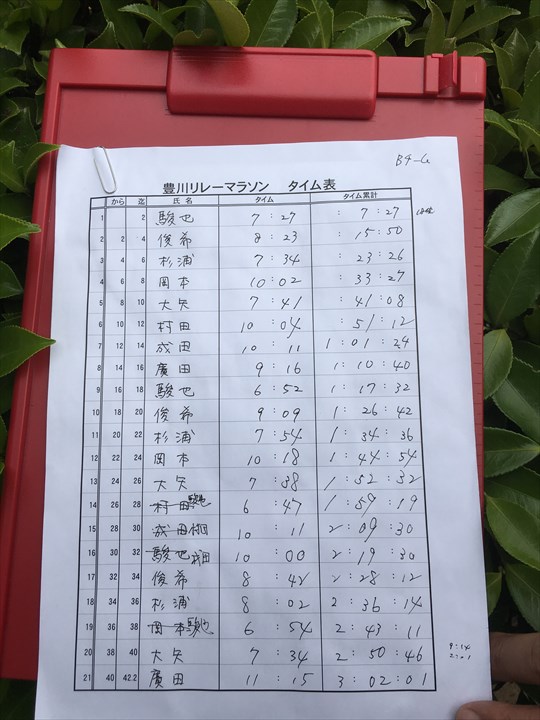 Bチーム
豊川リレーマラソン タイム表
から 迄 氏 名 タイム タイム累計
1 2 駿也 7:27 :7:27
2 2 4 俊希 8:23 :15:50
3 4 6 杉浦 7:34 :23:26
4 6 8 岡本 10:02 :33:27
5 8 10 大矢 7:41 :41:08
6 10 12 村田 10:04 :51:12
7 12 14 成田 10:11 1:01:24
8 14 16 廣田 9:16 1:10:40
9 16 18 駿也 6:52 1:17:32
10 18 20 俊希 9:09 1:26:42
11 20 22 杉浦 7:54 1:34:36
12 22 24 岡本 10:18 1:44:54
13 24 26 大矢 7:38 1:52:32
14 26 28 村田 駿也 6:47 1:59:19
15 28 30 成田 村田 10:11 2:09:30
16 30 32 駿也 成田 10:00 2:19:30
17 32 34 俊希 8:42 2:28:12
18 34 36 杉浦 8:02 2:36:14
19 36 38 岡本 駿也 6:54 2:43:11
20 38 40 大矢 7:34 2:50:46
21 40 42.2 廣田 11:15 3:02:01